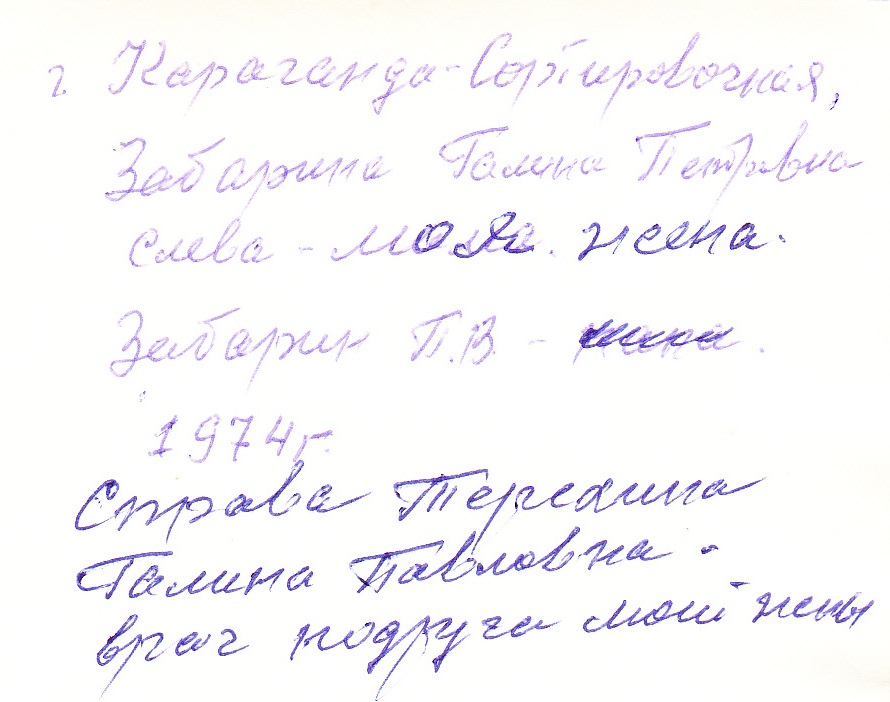 г. Караганда-Сортировочная,
Забарина Галина Петровна
слева - моя жена.
Забарин П.В. -
1974г.
Справа Терехина
Галина Павловна.
врач подруга моей жены